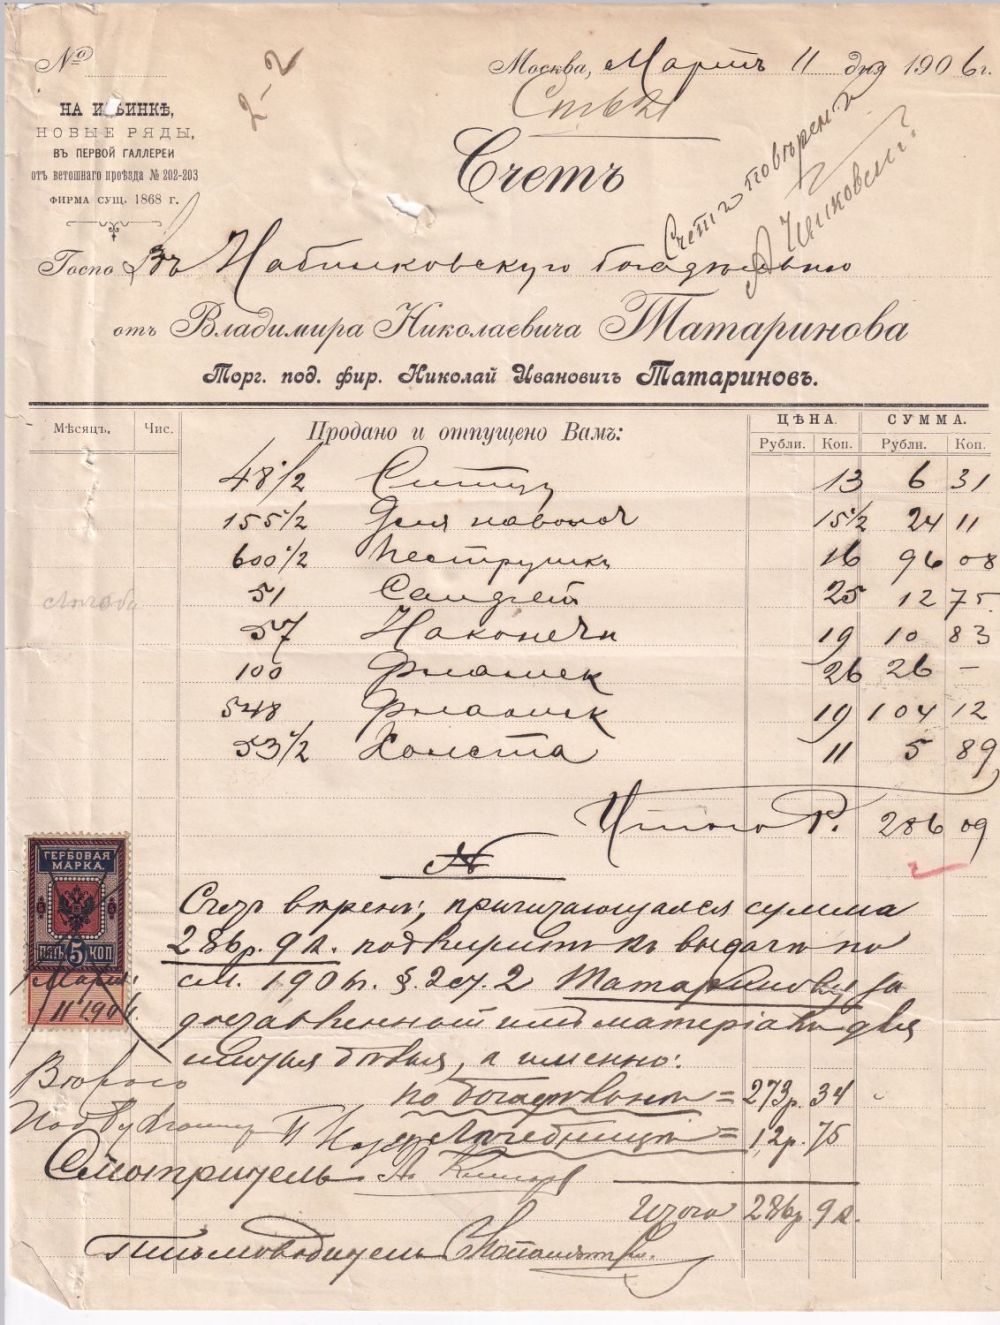 №
2-2
Москва, Мартъ 11 дня 1906 г.
НА ИЛЬИНКѢ,
НОВЫЕ РЯДЫ,
ВЪ ПЕРВОЙ ГАЛЛЕРЕИ
отъ ветошнаго проѣзда № 202-203
ФИРМА СУЩ. 1868 Г.
Счетъ
Счетъ повѣренъ
Госпо Въ Набилковскую богадѣльню
отъ Владиміра Николаевича Татаринова
Торг. под. фир. Николай Ивановичъ Татариновъ.
Мѣсяцъ. Чис. Продано и отпущено Вамъ: ЦѢНА. СУММА.
Рубли. Коп. Рубли. Коп.
48 1/2 Ситцу 13 6 31
155 1/2 Для наволоч 15 1/2 24 11
600 1/2 Пеструшки 16 96 08
51 25 12 75
57 19 10 83
100 26 26 —
548 19 104 12
53 1/2 Холста 11 5 89
Итого Р. 286 09
ГЕРБОВАЯ
МАРКА
5
ПЯТЬ КОП
Март.
11 1906.
Счетъ вѣренъ, причитающаяся сумма
286 р. 9 к. подлежитъ къ выдачѣ по
см. 1906 г. § 2 ст. 2 Татаринову за
доставленный имъ матеріалъ для
шитья бѣлья, а именно:
по богадѣльни = 273 р. 34
лечебницы = 12 р. 75
Смотритель
Итого 286 р 9 к.
Письмоводитель